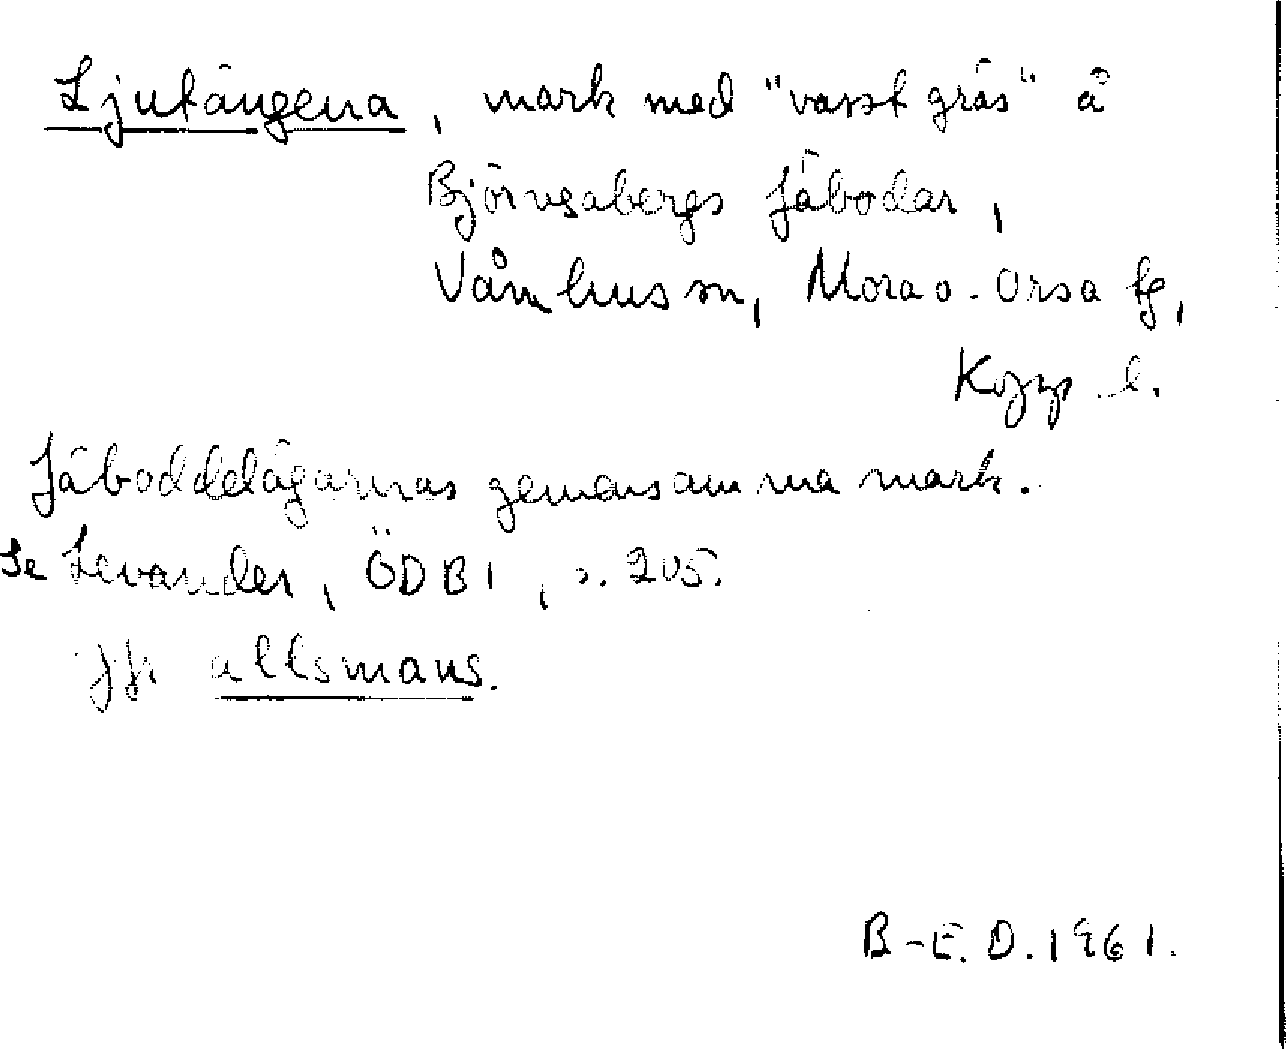 Ljutängena, mark med "vasst gräs" å
Björnsabergs fäbodar,
Våmhus sn, Mora o. Orsa tg,
Kopp. l.
Fäboddelägarnas gemensamma mark.
Se Levander, ÖDB I, s. 205.
Jfr allsmans.
B-E. D. 1961.